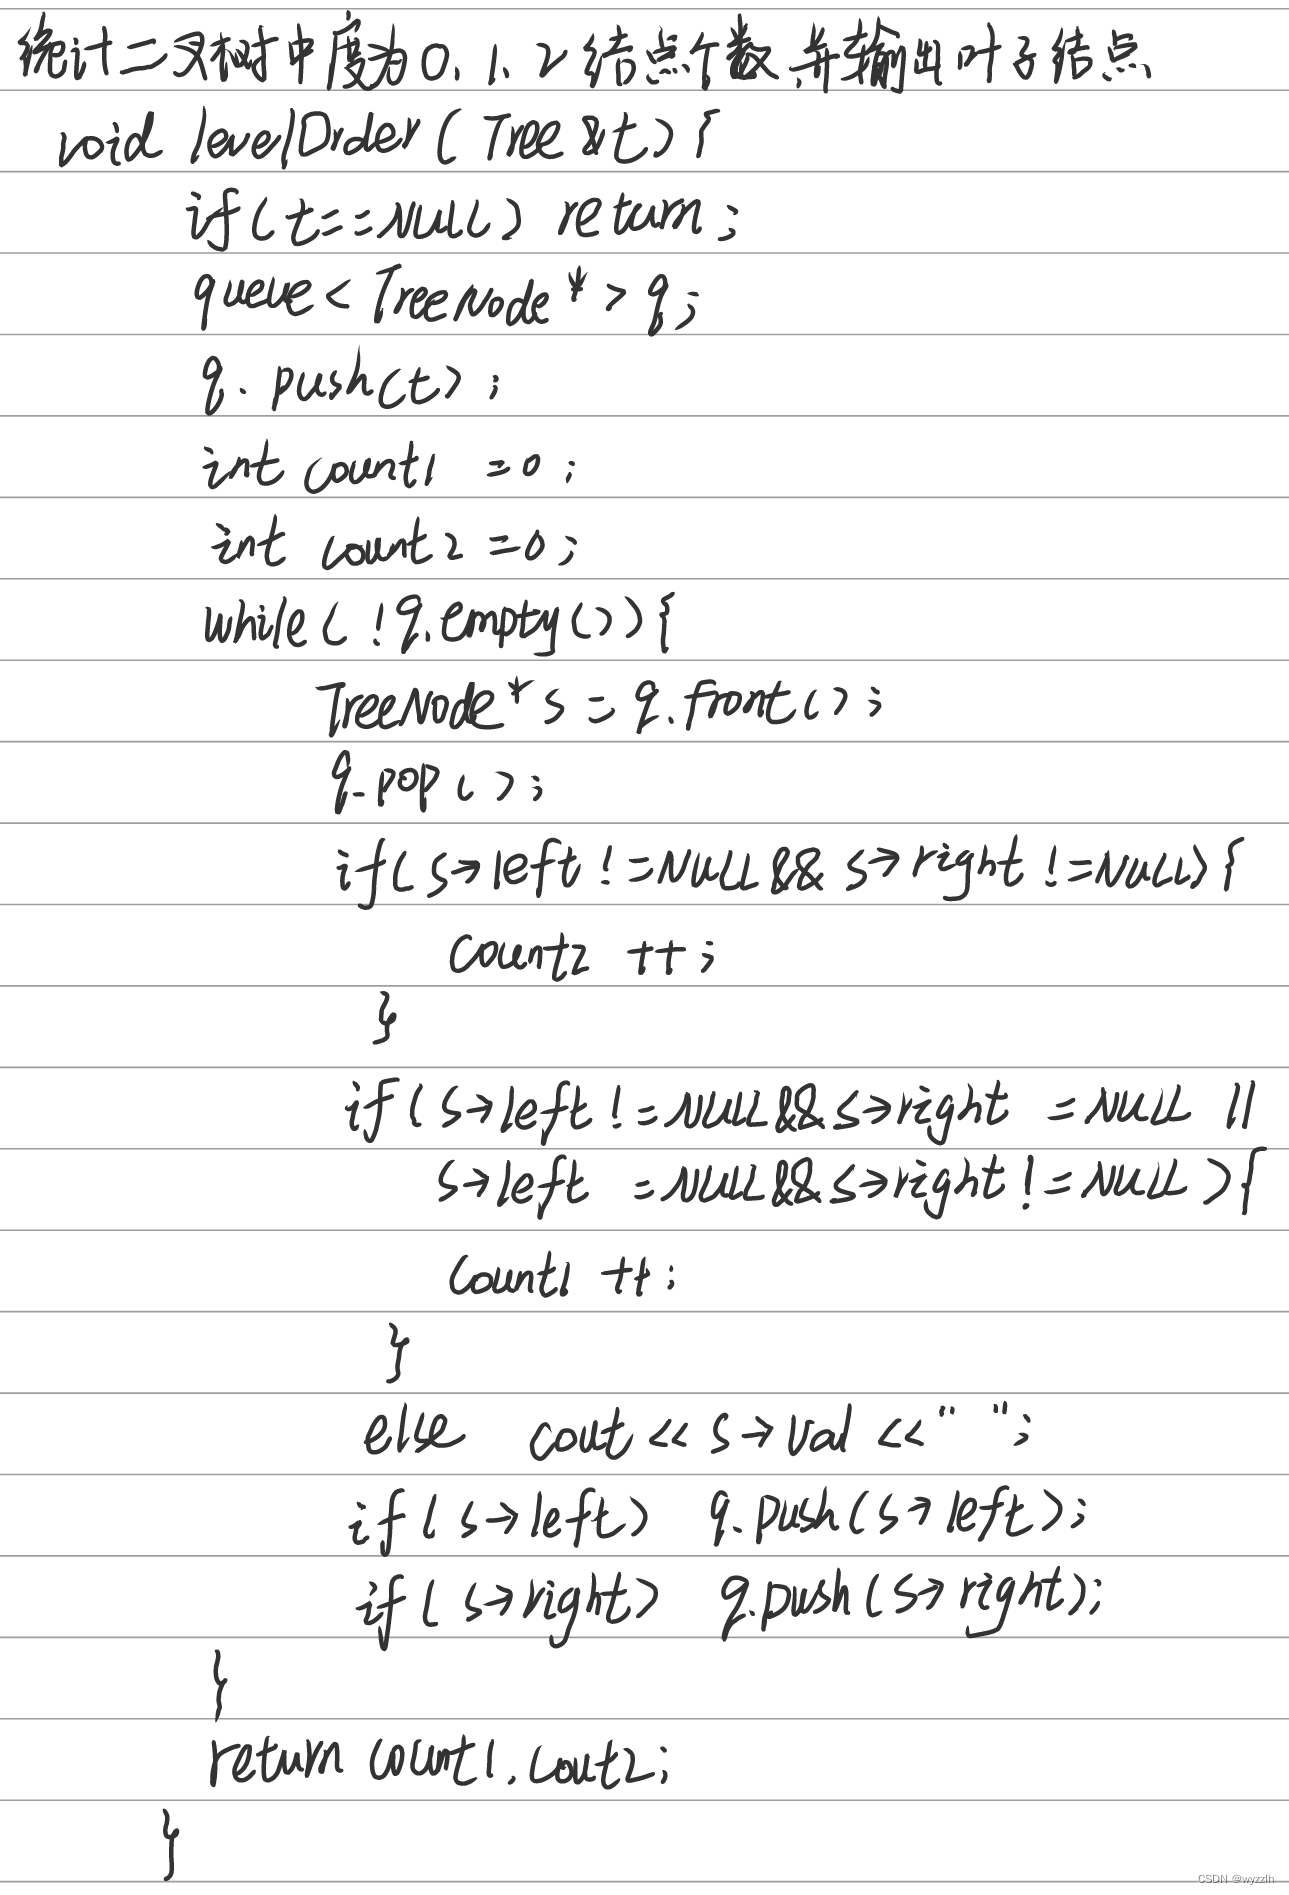 统计二叉树中度为0、1、2结点个数,并输出叶子结点
void levelOrder ( Tree &t) {
if(t==NULL) return ;
queue< TreeNode * > q;
q. push(t) ;
int count1 =0 ;
int count2 =0;
while( !q.empty()){
TreeNode* s = q.front();
q.pop();
if( s→left !=NULL&& s→right !=NULL) {
count2 ++;
}
if( s→left !=NULL&&s→right =NULL ||
s→left =NULL&&s→right !=NULL ) {
count1 ++;
}
else cout << s→val <<" ";
if( s→left) q.push(s→left);
if( s→right) q.push(s→right);
}
return count1,cout2;
}
CSDN @wyzzlh